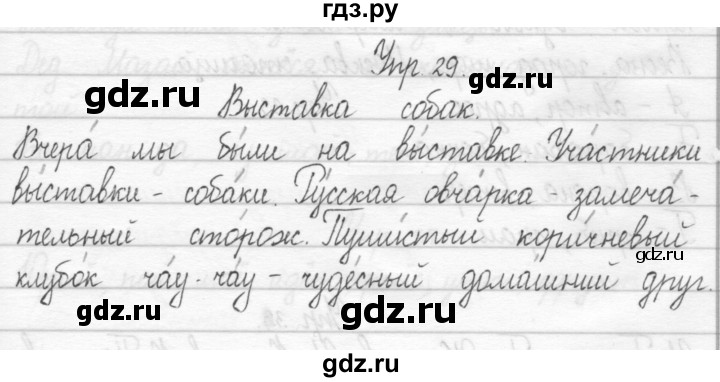 гдз.ру
Упр 29.
gdz.ru
gdz.ru
Выставка собак.
Вчера́ мы бы́ли на вы́ставке. Уча́стники
вы́ставки - соба́ки. Ру́сская овча́рка замеча́-
тельный сто́рож. Пуши́стый кори́чневый
клубо́к ча́у-ча́у - чуде́сный дома́шний друг.
gdz.ru
gdz.ru
gdz.ru